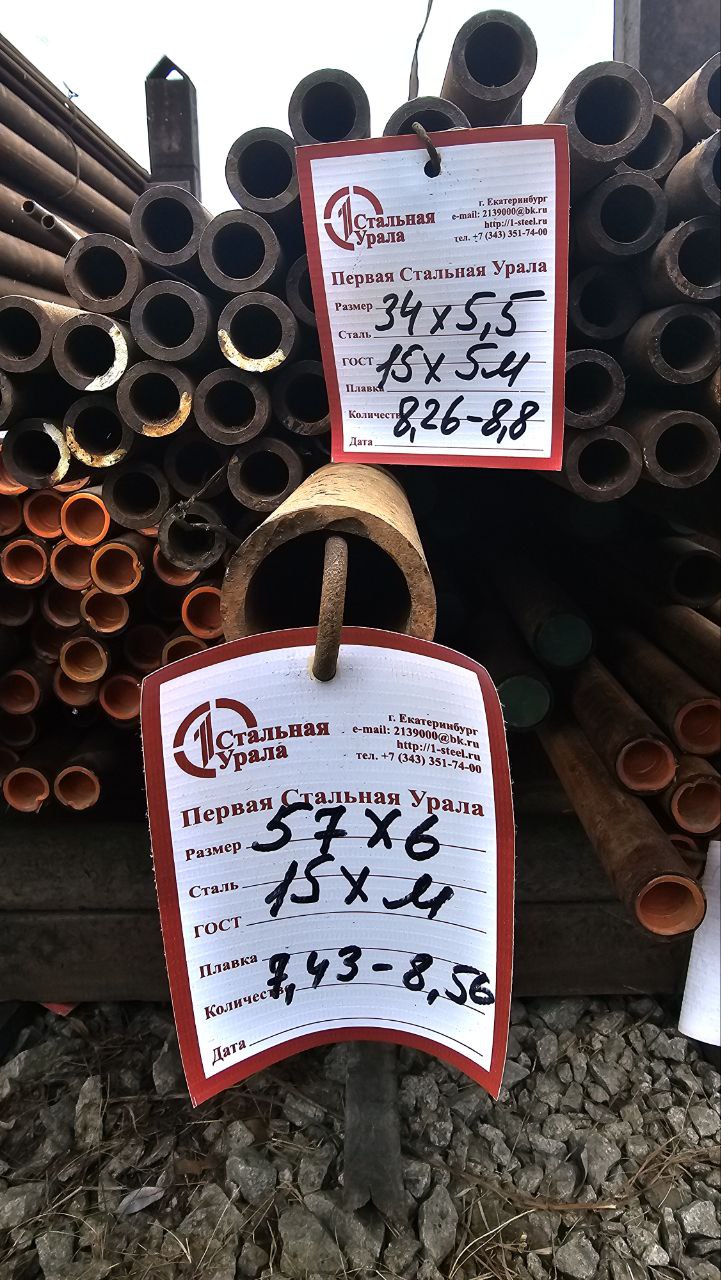 1 Стальная Урала
г. Екатеринбург
e-mail: 2139000@bk.ru
http://1-steel.ru
тел. +7 (343) 351-74-00
Первая Стальная Урала
Размер 34х5,5
Сталь
ГОСТ 15х5м
Плавка
Количество 8,26-8,8
Дата
1 Стальная Урала
г. Екатеринбург
e-mail: 2139000@bk.ru
http://1-steel.ru
тел. +7 (343) 351-74-00
Первая Стальная Урала
Размер 57х6
Сталь 15хм
ГОСТ
Плавка
Количество 7,43-8,56
Дата